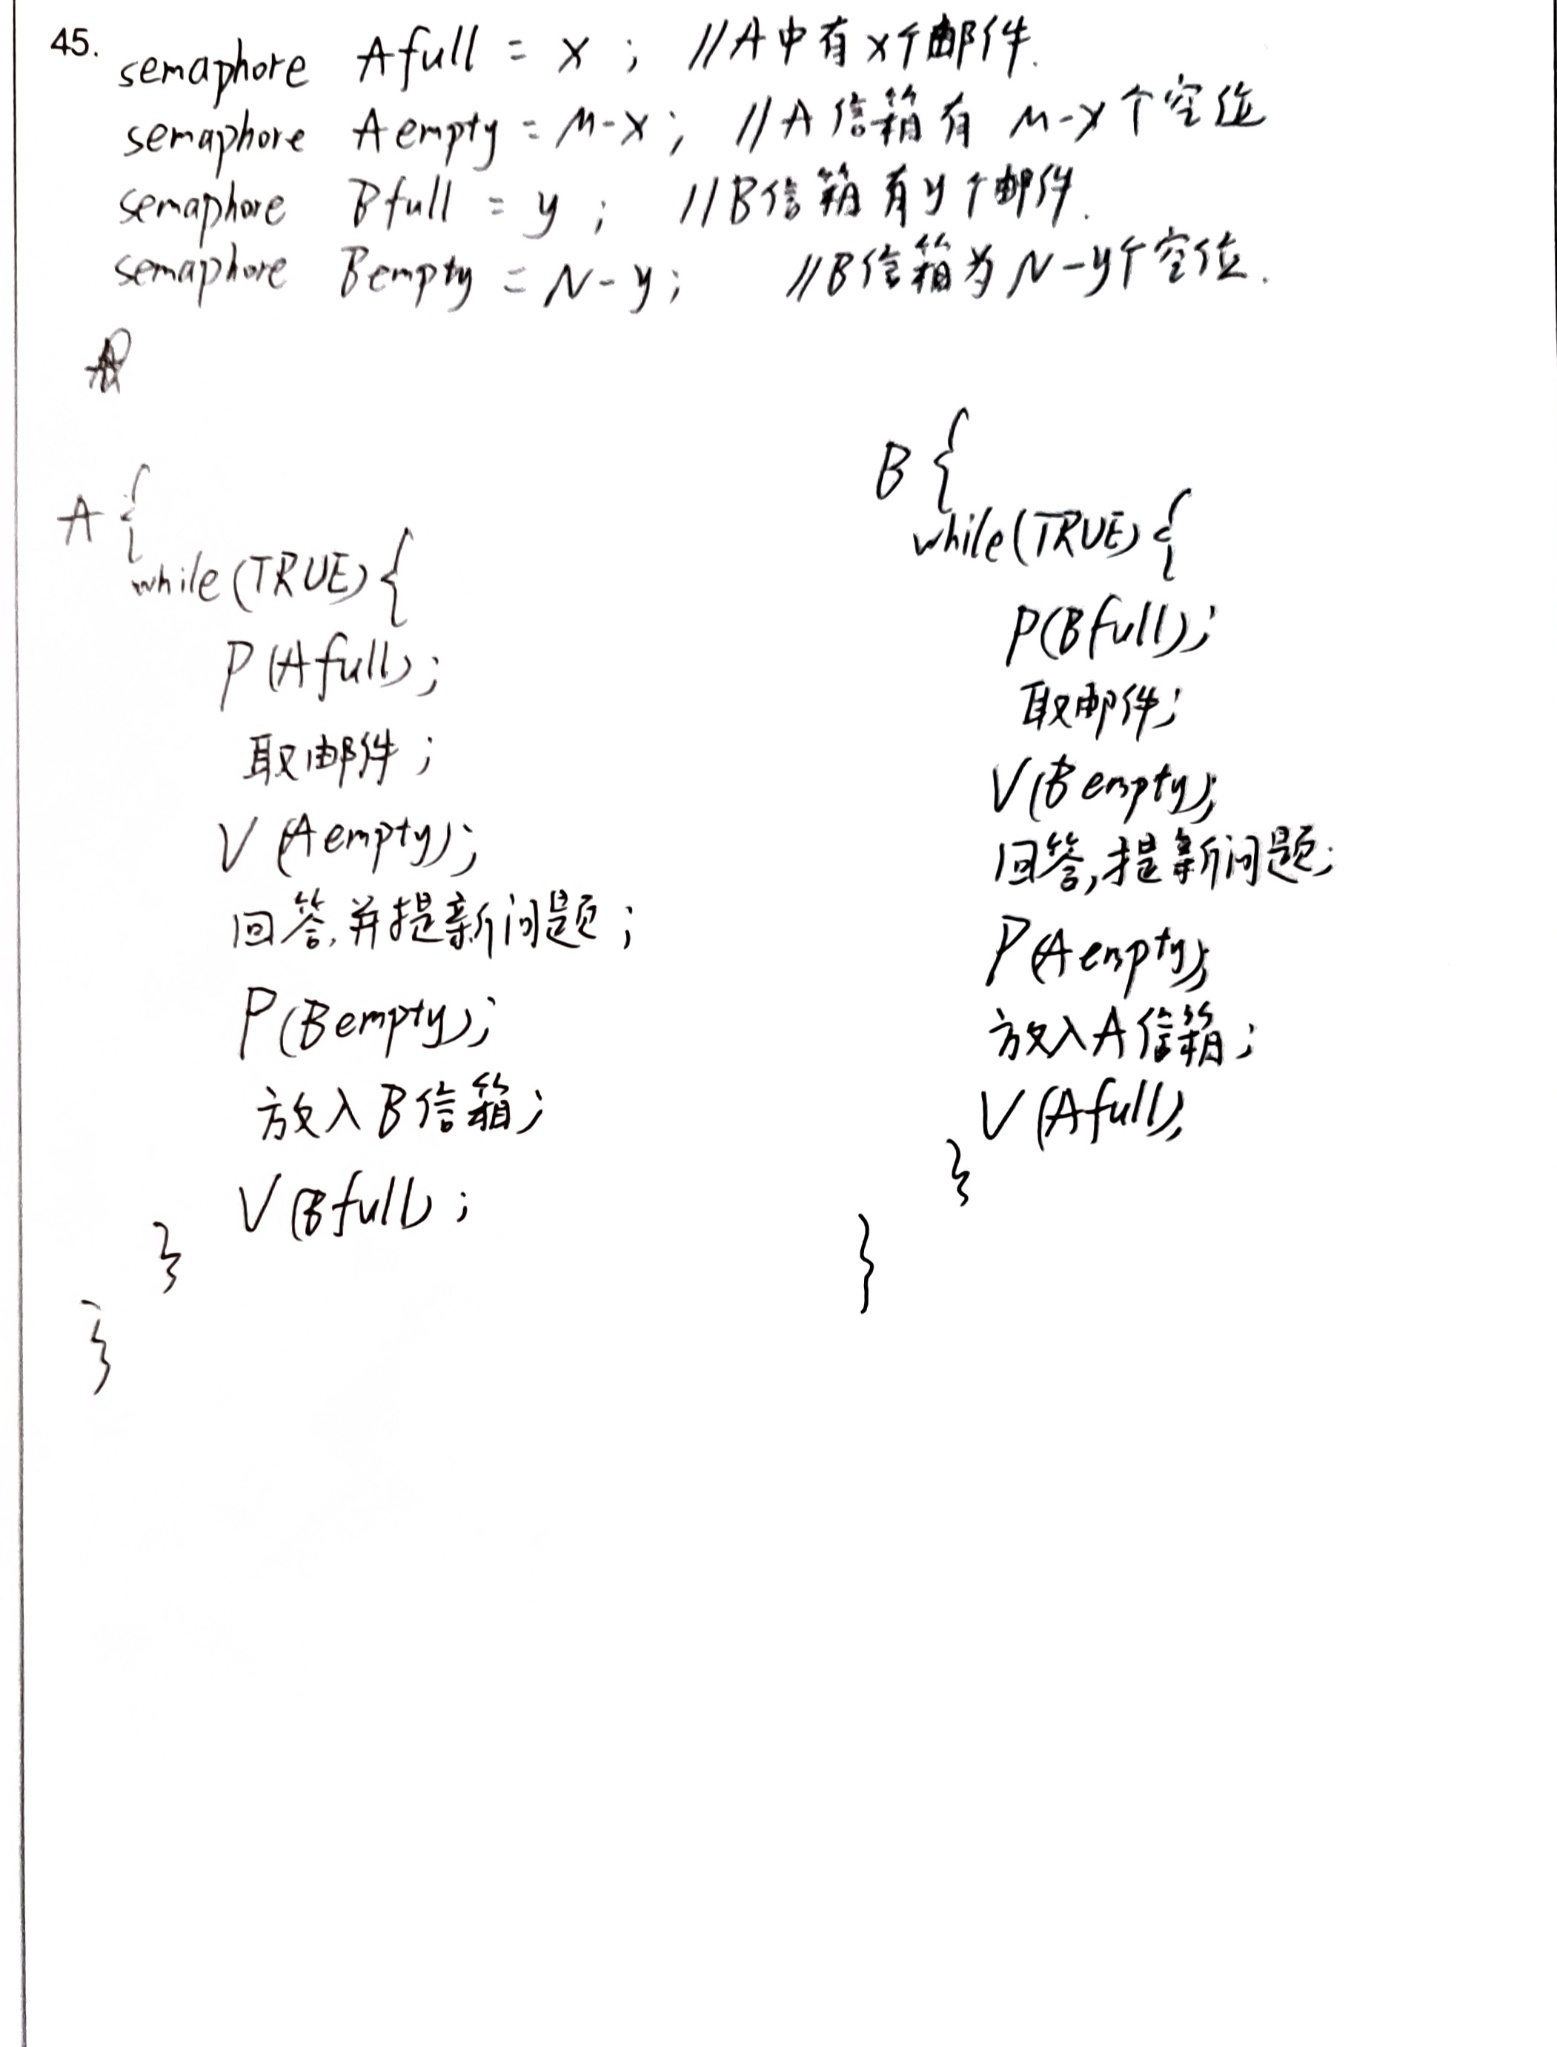 45. semaphore Afull = x ; //A中有x个邮件.
semaphore Aempty = M-x ; //A信箱有 M-x个空位
semaphore Bfull = y ; //B信箱有y个邮件.
semaphore Bempty = N-y ; //B信箱为N-y个空位.
A {
while(TRUE){
P(Afull);
取邮件;
V(Aempty);
回答,并提新问题;
P(Bempty);
放入B信箱;
V(Bfull);
}
}
B {
while(TRUE){
P(Bfull);
取邮件;
V(Bempty);
回答,提新问题;
P(Aempty);
放入A信箱;
V(Afull);
}
}